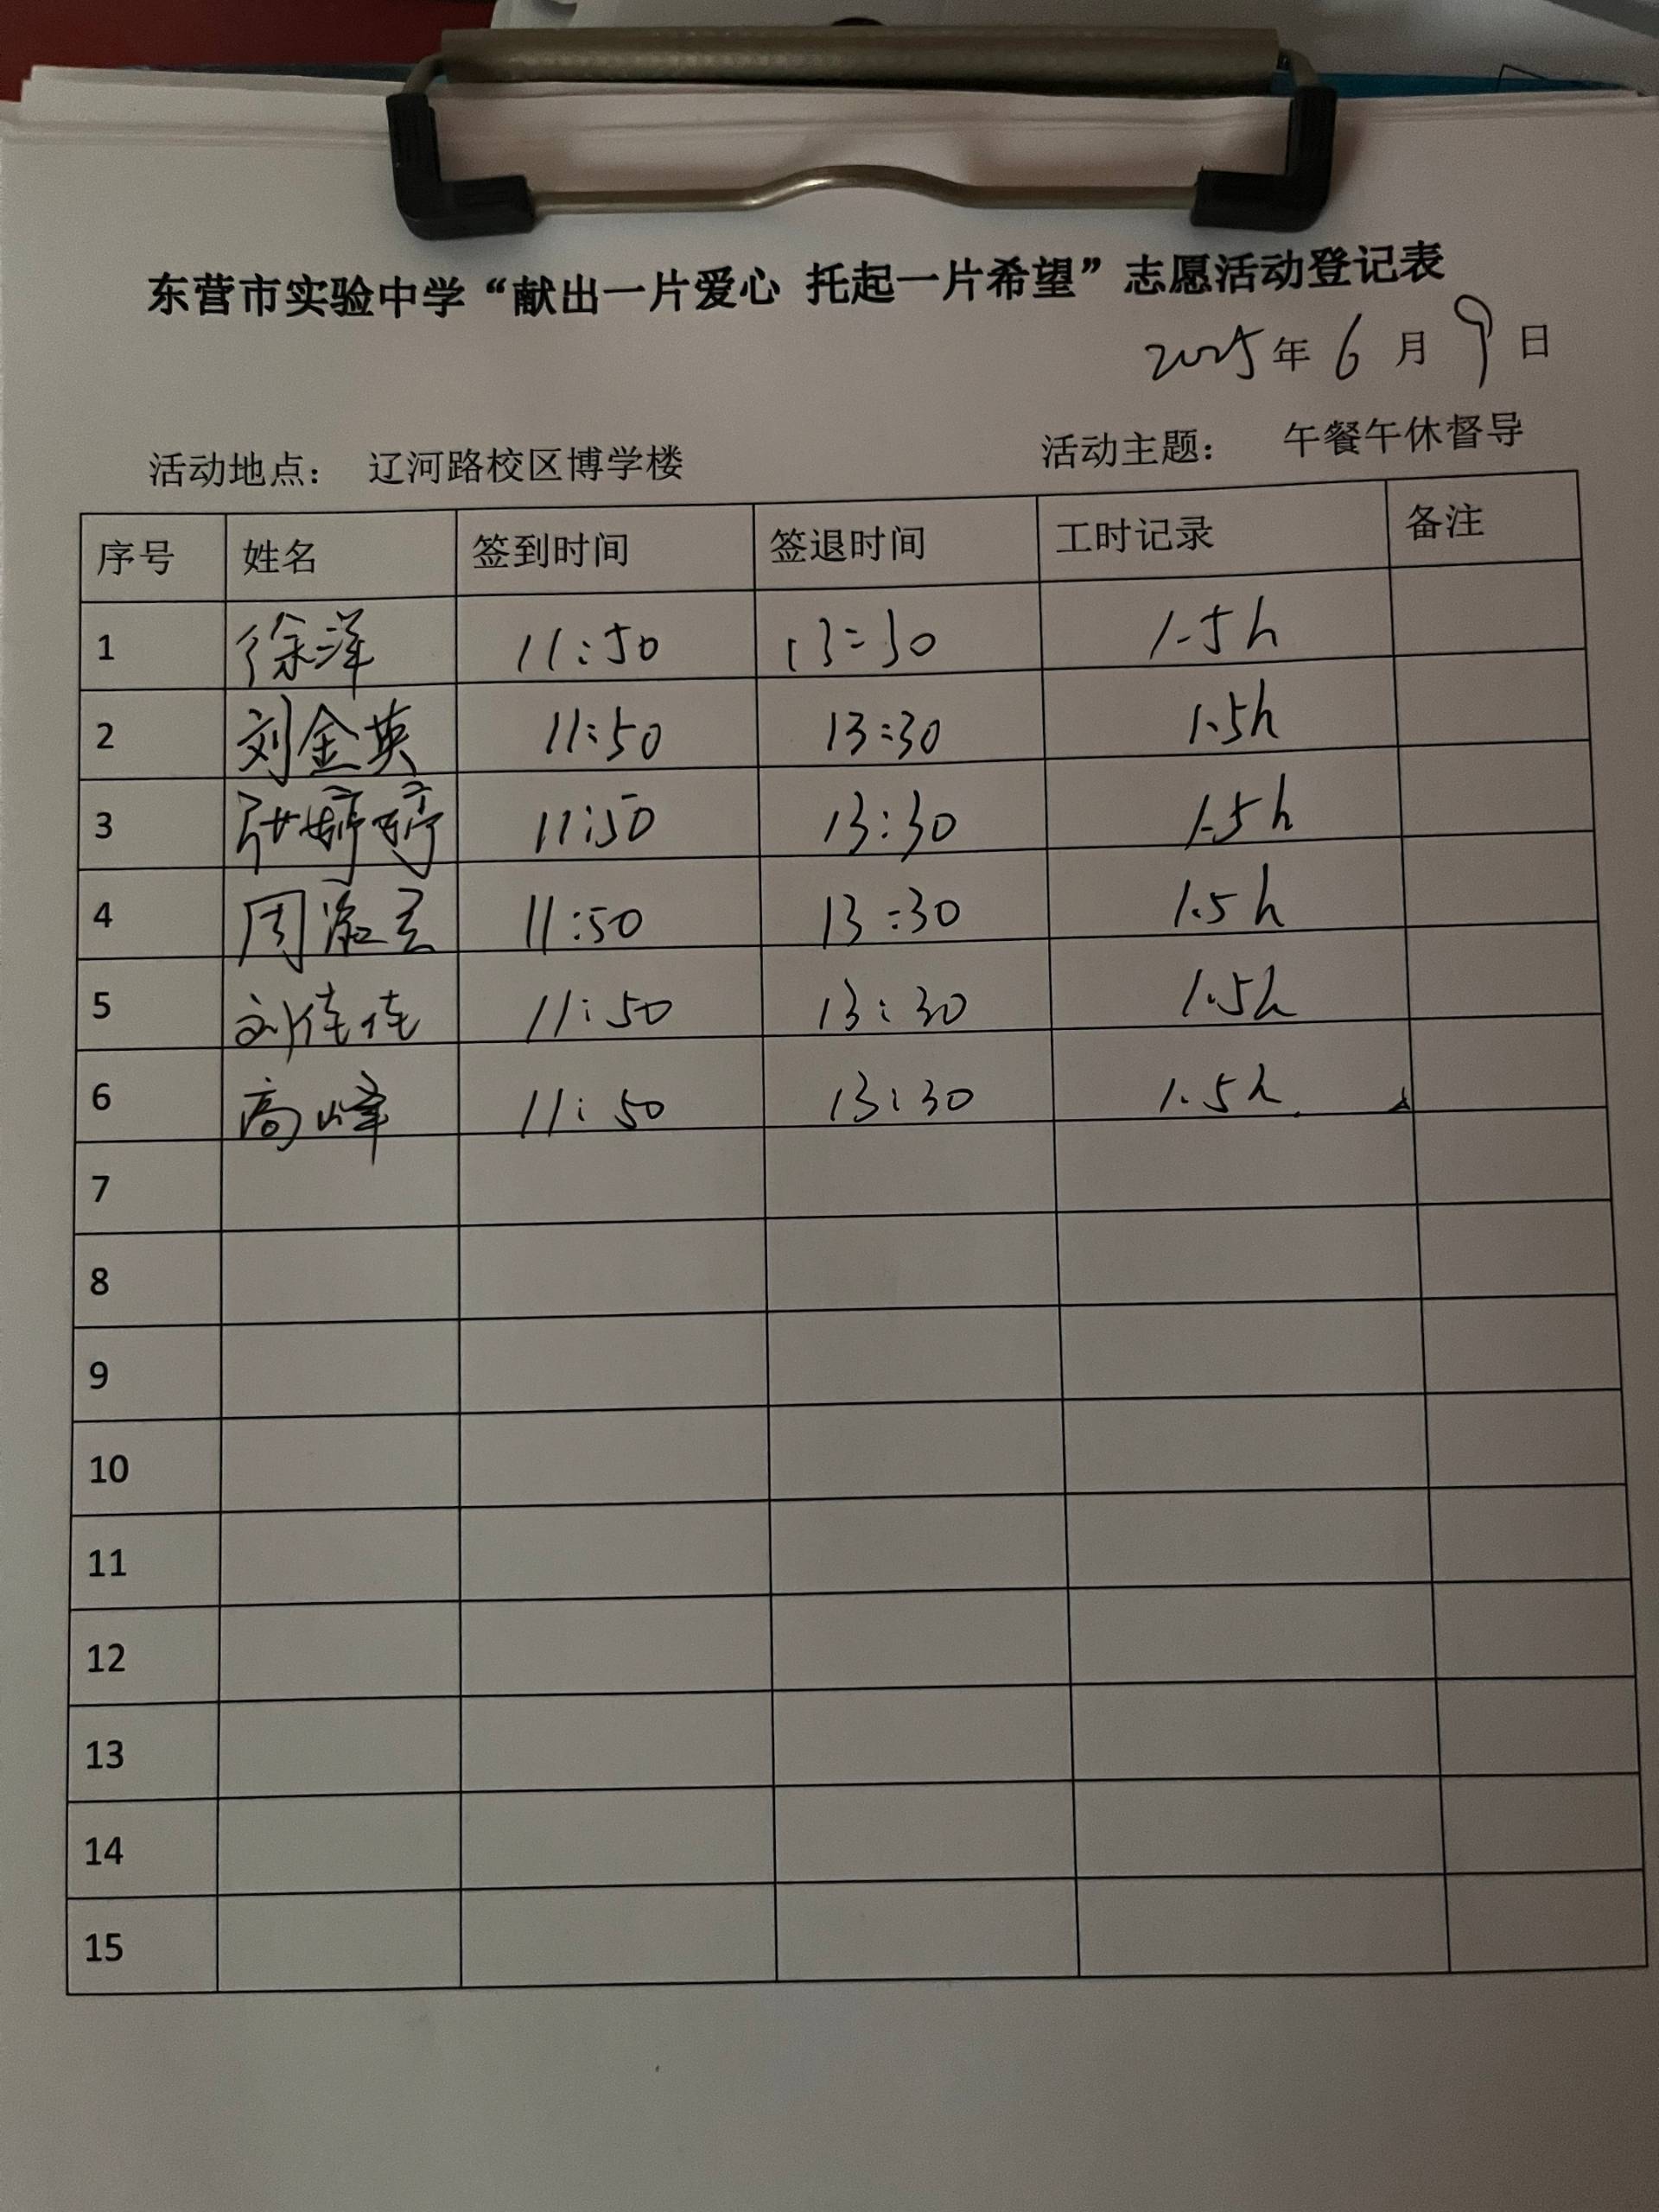 东营市实验中学“献出一片爱心 托起一片希望”志愿活动登记表
2025年 6 月 9 日
活动地点： 辽河路校区博学楼 活动主题： 午餐午休督导
序号 姓名 签到时间 签退时间 工时记录 备注
1 徐洋 11:50 13:30 1.5h
2 刘金英 11:50 13:30 1.5h
3 张婷婷 11:50 13:30 1.5h
4 周 11:50 13:30 1.5h
5 刘佳佳 11:50 13:30 1.5h
6 高峰 11:50 13:30 1.5h
7
8
9
10
11
12
13
14
15